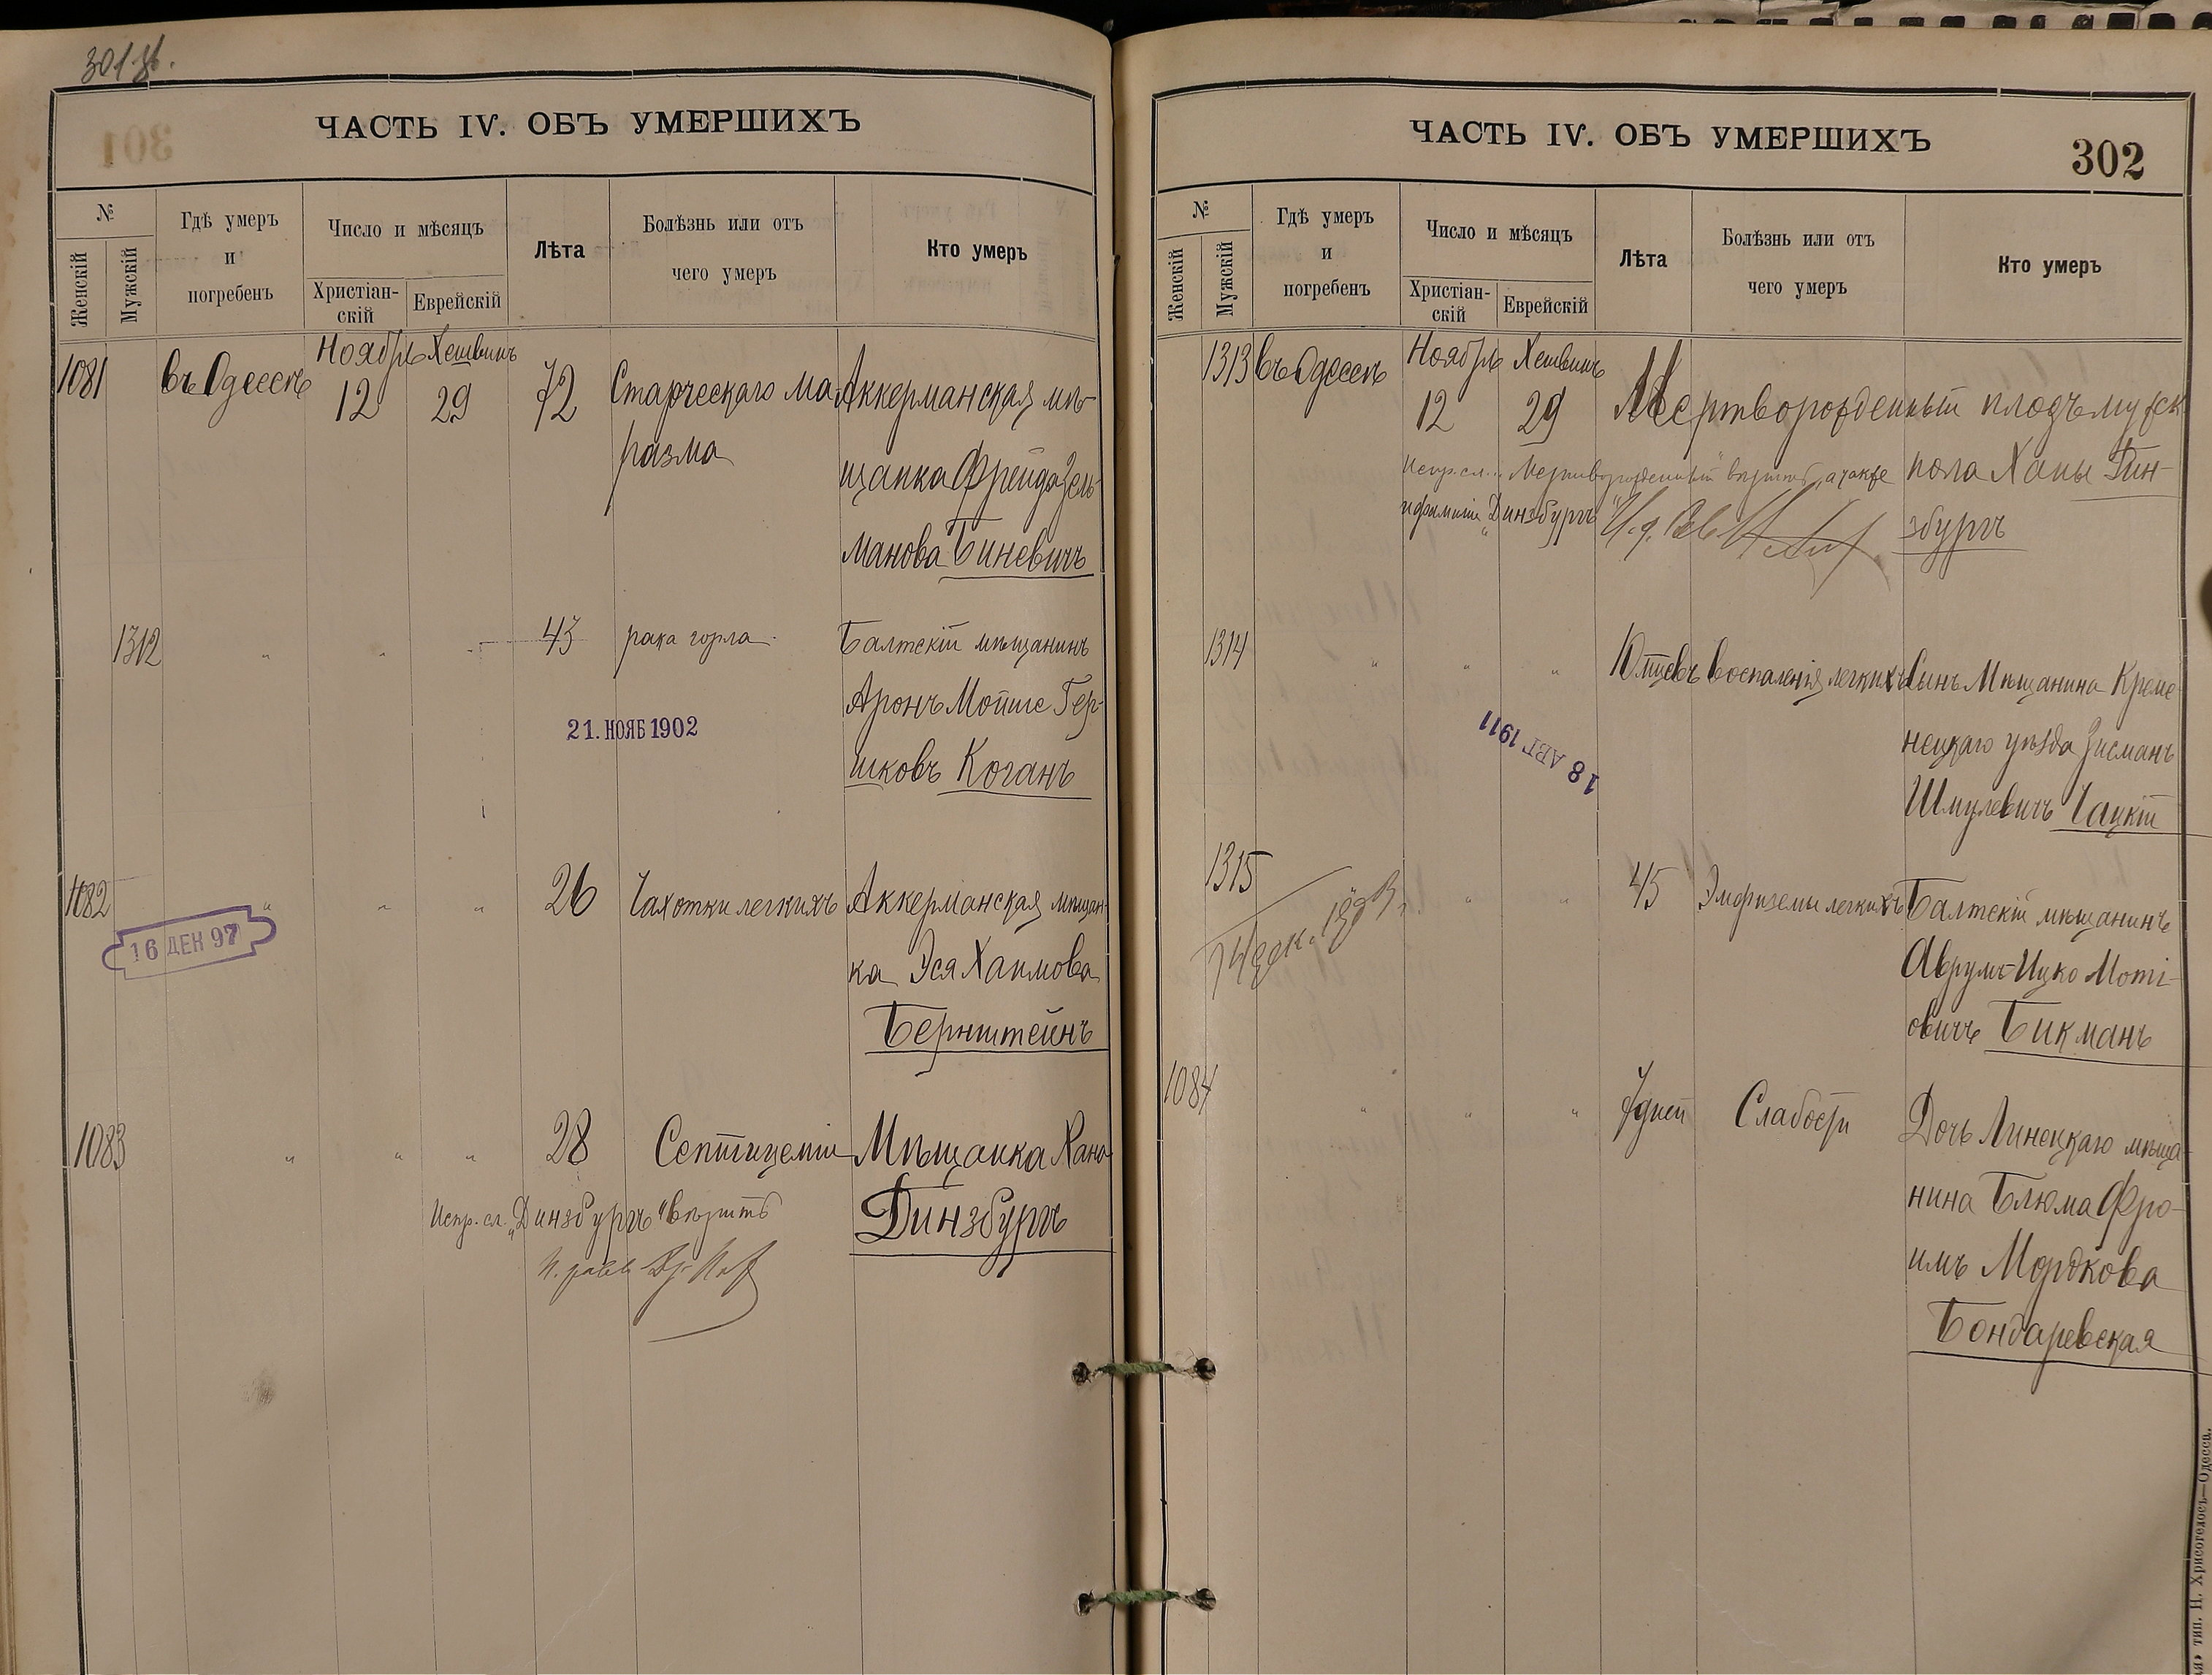 301 зв.
ЧАСТЬ IV. ОБЪ УМЕРШИХЪ
301
№
Женскій
Мужскій
Гдѣ умеръ
и
погребенъ
Число и мѣсяцъ
Христіан-
скій
Еврейскій
Лѣта
Болѣзнь или отъ
чего умеръ
Кто умеръ
1081
въ Одессѣ
Ноябрь
12
Хешвинъ
29
72
Старческаго ма-
разма
Аккерманская мѣ-
щанка Фрейда Зель-
манова Биневичъ
1312
"
"
"
43
рака горла
Балтскій мѣщанинъ
Аронъ Мойше Гер-
шковъ Коганъ
21. НОЯБ 1902
1082
"
"
"
26
Чахотки легкихъ
Аккерманская мѣщан-
ка Эся Хаимова
Бернштейнъ
16 ДЕК 97
1083
"
"
"
28
Септицеміи
Мѣщанка Хана
Динзбургъ
Испр. сл. „Динзбургъ“ вѣрить
ЧАСТЬ IV. ОБЪ УМЕРШИХЪ
302
№
Женскій
Мужскій
Гдѣ умеръ
и
погребенъ
Число и мѣсяцъ
Христіан-
скій
Еврейскій
Лѣта
Болѣзнь или отъ
чего умеръ
Кто умеръ
1313
въ Одессѣ
Ноябрь
12
Хешвинъ
29
Мертворожденный плодъ мужск
пола Ханы Гин-
збургъ
Испр. сл. „Мертворожденный“ вѣрить, а также
и фамилія „Динзбургъ“
1314
"
"
"
10 мцевъ
Воспаленія легкихъ
Сынъ Мѣщанина Креме-
нецкаго уѣзда Зисманъ
Шмулевичъ Чацкій
18 АВГ 1911
1315
"
"
45
Эмфиземы легкихъ
Балтскій мѣщанинъ
Аврумъ-Ицко Моті-
овичъ Бикманъ
1084
"
"
"
7 дней
Слабости
Дочь Линецкаго мѣща-
нина Блюма Фро-
имъ Мордкова
Бондаревская
тип. П. Хрисогелосъ—Одесса.